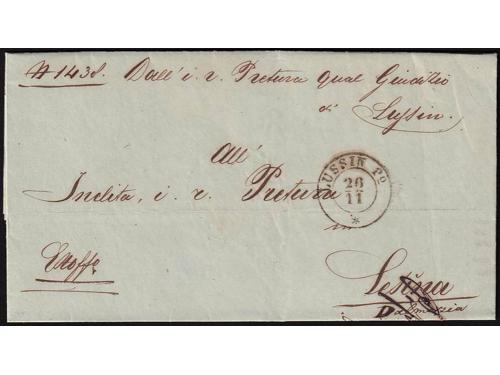 N 1438. Dall' i. r. Pretura qual Giudizio
di Lussin.
All'
Inclita, i. r. Pretura
LUSSIN Po
26
11
in
Exoffo
Lesina
Dalmazia